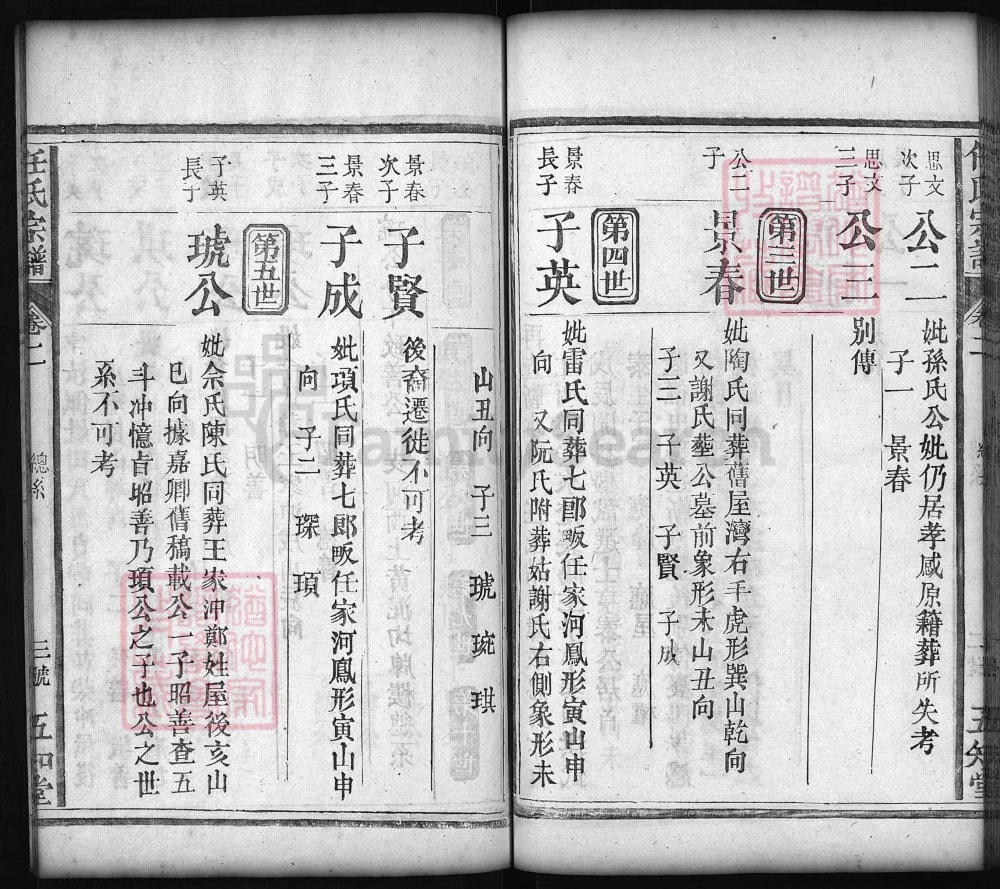 思文
次子
公二
妣孫氏公妣仍居孝感原籍葬所失考
子一　景春
思文
三子
公三
別傳
第三世
公二
子
景春
妣陶氏同葬舊屋灣右手虎形巽山乾向
又謝氏塟公墓前象形未山丑向
子三　子英　子賢　子成
第四世
景春
長子
子英
妣雷氏同葬七郎畈任家河鳳形寅山申
向　又阮氏附葬姑謝氏右側象形未
五知堂
山丑向　子三　琥　琬　琪
景春
次子
子賢
後裔遷徙不可考
景春
三子
子成
妣項氏同葬七郎畈任家河鳳形寅山申
向　子二　琛　頊
第五世
子英
長子
琥公
妣佘氏陳氏同葬王家冲鄭姓屋後亥山
巳向據嘉卿舊稿載公一子昭善查五
斗冲憶㫖昭善乃頊公之子也公之世
系不可考
任氏宗譜
卷二
總系
三號
五知堂
FamilySearch